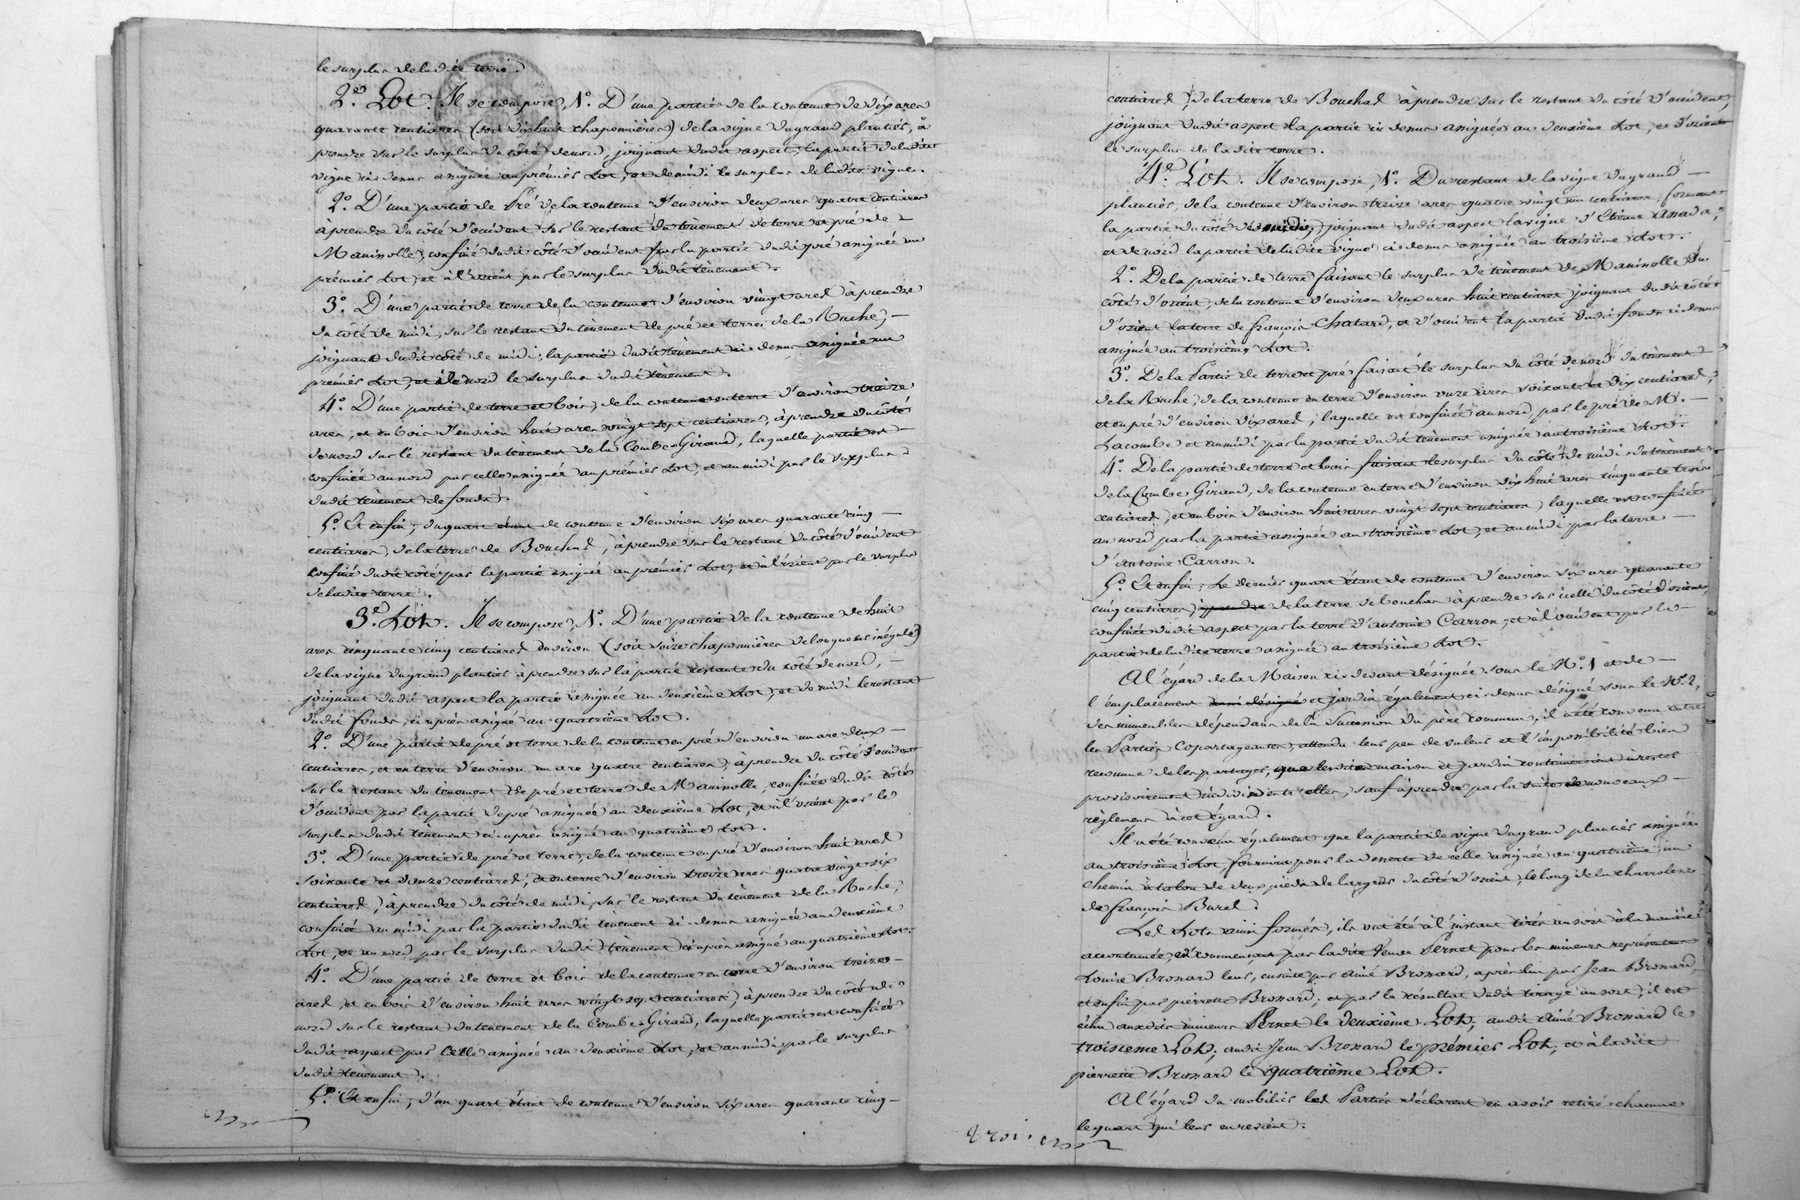 le surplus de la dite terre.
2e. Lot. Il se compose, 1o. D'une partie de la contenue de dix ares
quarante centiares (soit dixhuit chaponnières) de la vigne du grand plantier, à
prendre sur le surplus du côté de nord, joignant dudit aspect, la partie de la dite
vigne ci denus assignée au prémier Lot, et de midi le surplus de la dite vigne.
2o. D'une partie de Pré de la contenue d'environ deux ares quatre centiares
à prendre du côté d'occident sur le restant du tènement de terre et pré de
Maninolle, confiné dudit côté d'occident par la partie dudit pré assignée au
prémier Lot, et à l'orient par le surplus dudit tenement.
3o. D'une partie de terre de la contenue d'environ vingt ares à prendre
du côté de midi, sur le restant du tènement de pré et terre de la Ruche,
joignant dudit côté de midi, la partie dudit tènement ci denus assignée au
prémier Lot, et de nord le surplus dudit tènement.
4o. D'une partie de terre et bois, de la contenue en terre d'environ treize
ares, et en bois d'environ huit ares vingt sept centiares, à prendre du côté
de nord sur le restant du tènement de la Combe Giraud, laquelle partie est
confinée au nord par celle assignée au prémier Lot, et au midi par le surplus
dudit tènement de fonds.
5o. Et enfin, du quart étant de contenue d'environ six ares quarante cinq
centiares, de la terre de Bouchas, à prendre sur le restant du côté d'occident
confiné dudit côté par la partie assignée au prémier Lot, et à l'orient par le surplus
de la dite terre.
3e. Lot. Il se compose, 1o. D'une partie de la contenue de huit
ares cinquante cinq centiares environ (soit seize chaponnières de longueur inégale)
de la vigne du grand plantier à prendre sur la partie restante du côté de nord,
joignant dudit aspect la partie assignée au deuxième Lot, et de midi le restant
dudit fonds, ci après assigné au quatrième Lot.
2o. D'une partie de pré et terre de la contenue en pré d'environ un are deux
centiares, et en terre d'environ un are quatre centiares, à prendre du côté d'occident
sur le restant du tenement de pré et terre de Maninolle, confinée dudit côté
d'occident par la partie de pré assignée au deuxième Lot, et à l'orient par le
surplus dudit tenement ci après assigné au quatrième Lot.
3o. D'une partie de pré et terre, de la contenue en pré d'environ huit ares
soixante et douze centiares, et en terre d'environ treize ares quatre vingt six
centiares, à prendre du côté de midi, sur le restant du tènement de la Ruche,
confinée au midi par la partie dudit tènement ci denus assignée au deuxième
Lot, et au nord par le surplus dudit tènement ci après assigné au quatrième Lot.
4o. D'une partie de terre et bois de la contenue en terre d'environ treize
ares, et en bois d'environ huit ares vingt sept centiares, à prendre du côté de
nord sur le restant du tenement de la Combe Giraud, laquelle partie est confinée
dudit aspect par celle assignée au deuxième Lot, et au midi par le surplus
dudit tènement.
5o. Et enfin, d'un quart étant de contenue d'environ six ares quarante cinq
centiares, de la terre de Bouchas à prendre sur le restant du côté d'occident,
joignant dudit aspect la partie ci denus assignée au deuxième Lot, et d'orient
le surplus de la dite terre.
4e. Lot. Il se compose, 1o. Du restant de la vigne du grand
plantier, de la contenue d'environ treize ares quatre vingt un centiares, formant
la partie du côté de midi, joignant dudit aspect la vigne d'Etienne
et de nord la partie de la dite vigne ci denus assignée au troisième Lot.
2o. De la partie de terre faisant le surplus de tènement de Maninolle du
côté d'orient, de la contenue d'environ deux ares huit centiares joignant dudit côté
d'orient la terre de françois Chatard, et d'occident la partie dudit fonds ci denus
assignée au troisième Lot.
3o. De la Partie de terre et pré faisant le surplus du côté de nord du tènement
de la Ruche, de la contenue en terre d'environ onze ares soixante et dix centiares,
et en pré d'environ dix ares, laquelle est confinée au nord par le pré de M.
Lacombe et au midi par la partie dudit tènement assignée au troisième Lot.
4o. De la partie de terre et bois faisant le surplus du côté de midi du tènement
de la Combe Giraud, de la contenue en terre d'environ dix huit ares cinquante trois
centiares, et en bois d'environ huit ares vingt sept centiares, laquelle est confinée
au nord par la partie assignée au troisième Lot, et au midi par la terre
d'Antoine Carron.
5o. Et enfin, Le dernier quart étant de contenue d'environ six ares quarante
cinq centiares, de la terre de Bouchas à prendre sur icelle du côté d'orient,
confinée dudit aspect par la terre d'Antoine Carron, et à l'occident par la
partie de la dite terre assignée au troisième Lot.
A l'égard de la Maison ci devant désignée sous le No. 1 et de
l'emplacement et jardin également ci denus désigné sous le No. 2,
ces immeubles dépendans de la Succession du père commun, il a été convenu entre
les Parties Copartageantes, attendu leur peu de valeur et l'impossibilité bien
reconnue de les partager, que lesdits maison et jardin continueraient à rester
provisoirement indivis entr'elles, sauf à prendre par la suite de nouveaux
règlemens à cet égard.
Il a été convenu également que la partie de vigne du grand plantier assignée
au troisième Lot fournira pour la desserte de celle assignée au quatrième, un
chemin à talon de deux pieds de largeur du côté d'orient, le long de la charrolerie
de françois Burel.
Les Lots ainsi formés, ils ont été à l'instant tirés au sort à la manière
accoutumée, en commençant par la dite Veuve Pernet pour les mineurs représentans
Louise Bronard leur, ensuite par Aimé Bronard, après lui par Jean Bronard,
et enfin par pierrette Bronard; et par le résultat dudit tirage au sort, il est
échu auxdits mineurs Pernet le deuxième Lot, audit Aimé Bronard le
troisieme Lot, audit Jean Bronard le prémier Lot, et à la dite
pierrette Bronard le quatrième Lot.
A l'égard du mobilier les Parties déclarent en avoir retiré chacune
le quart qui leur en revient.